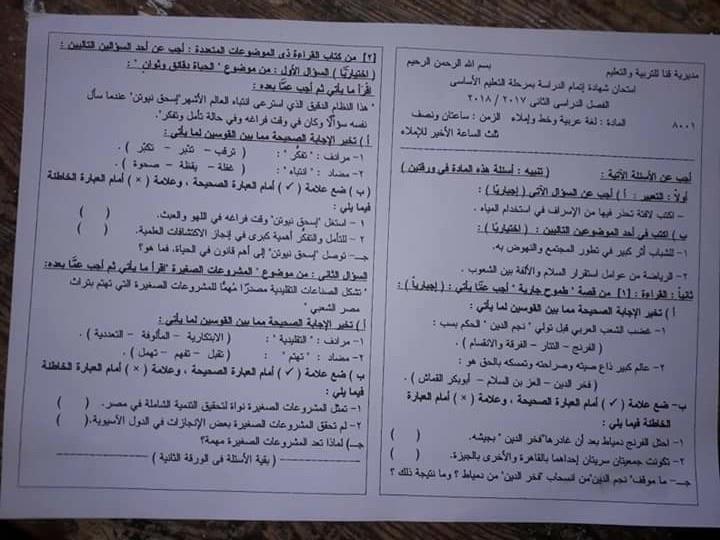 بسم الله الرحمن الرحيم
مديرية قنا للتربية والتعليم
امتحان شهادة إتمام الدراسة بمرحلة التعليم الأساسى
الفصل الدراسى الثانى ٢٠١٧ / ٢٠١٨
٨٠٠١ المادة : لغة عربية وخط وإملاء الزمن : ساعتان ونصف
ثلث الساعة الأخير للإملاء
أجب عن الأسئلة الآتية : ( تنبيه : أسئلة هذه المادة في ورقتين )
أولاً : التعبير : أ ) أجب عن السؤال الآتى ( إجباريًا ) :
- اكتب لافتة تحذر فيها من الإسراف في استخدام المياه .
ب ) اكتب في أحد الموضوعين التاليين : ( اختياريًا ) :
١- للشباب أثر كبير في تطور المجتمع والنهوض به.
٢- الرياضة من عوامل استقرار السلام والألفة بين الشعوب .
ثانيًا : القراءة : [١] من قصة " طموح جارية " أجب عمَّا يأتي : ( إجباريًا ) :
أ ) تخير الإجابة الصحيحة مما بين القوسين لما يأتي :
١- غضب الشعب العربي قبل تولي " نجم الدين " الحكم بسب :
( الفرنج – التتار – الفرقة والانقسام ) .
٢- عالم كبير ذاع صيته وصراحته وتمسكه بالحق هو :
( فخر الدين – العز بن السلام – أبوبكر القماش ) .
ب- ضع علامة ( ✓ ) أمام العبارة الصحيحة ، وعلامة ( × ) أمام العبارة
الخاطئة لما يلي :
١- احتل الفرنج دمياط بعد أن غادرها"فخر الدين " بجيشه. ( )
٢- تكونت جمعيتان سريتان إحداهما بالقاهرة والأخرى بالجيزة. ( )
جـ- ما موقف" نجم الدين"من انسحاب "فخر الدين" من دمياط ؟ وما نتيجة ذلك ؟
[٢] من كتاب القراءة ذى الموضوعات المتعددة : أجب عن أحد السؤالين التاليين :
( اختياريًّا ) السؤال الأول : من موضوع " الحياة دقائق وثوان " :
اقرأ ما يأتي ثم أجب عمَّا بعده :
" هذا النظام الدقيق الذي استرعى انتباه العالم الأشهر"إسحق نيوتن" عندما سأل
نفسه سؤالًا وكان في وقت فراغه وفي حالة تأمل وتفكر".
أ ) تخير الإجابة الصحيحة مما بين القوسين لما يأتي :
١- مرادف : " تفكُّر " : ( ترقب – تدَّبر – تكبُّر ) .
٢- مضاد : " انتباه" : ( غفلة – يقظة – صحوة ) .
( ب ) ضع علامة ( ✓ ) أمام العبارة الصحيحة ، وعلامة ( × ) أمام العبارة الخاطئة
فيما يلي :
١- استغل "إسحق نيوتن" وقت فراغه في اللهو والعبث. ( )
٢- للتأمل والتفكُر أهمية كبرى في إنجاز الاكتشافات العلمية. ( )
جـ- توصل "إسحق نيوتن" إلى أهم قانون في الحياة. فما هو؟
السؤال الثاني : من موضوع " المشروعات الصغيرة "اقرأ ما يأتي ثم أجب عمَّا بعده:
" تشكل الصناعات التقليدية مصدرًا مُهمًّا للمشروعات الصغيرة التي تهتم بتراث
مصر الشعبي "
أ ) تخير الإجابة الصحيحة مما بين القوسين لما يأتي :
١- مرادف : " التقليدية " : ( الابتكارية – المألوفة – التعددية ) .
٢- مضاد : " تهتم " : ( تقبل – تفهم – تهمل ) .
ب ) ضع علامة ( ✓ ) أمام العبارة الصحيحة ، وعلامة ( × ) أمام العبارة الخاطئة
فيما يلي :
١- تمثل المشروعات الصغيرة نواة لتحقيق التنمية الشاملة في مصر. ( )
٢- لم تحقق المشروعات الصغيرة بعض الإنجازات في الدول الآسيوية.( )
جـ) لماذا تعد المشروعات الصغيرة مهمة؟
( بقية الأسئلة فى الورقة الثانية )